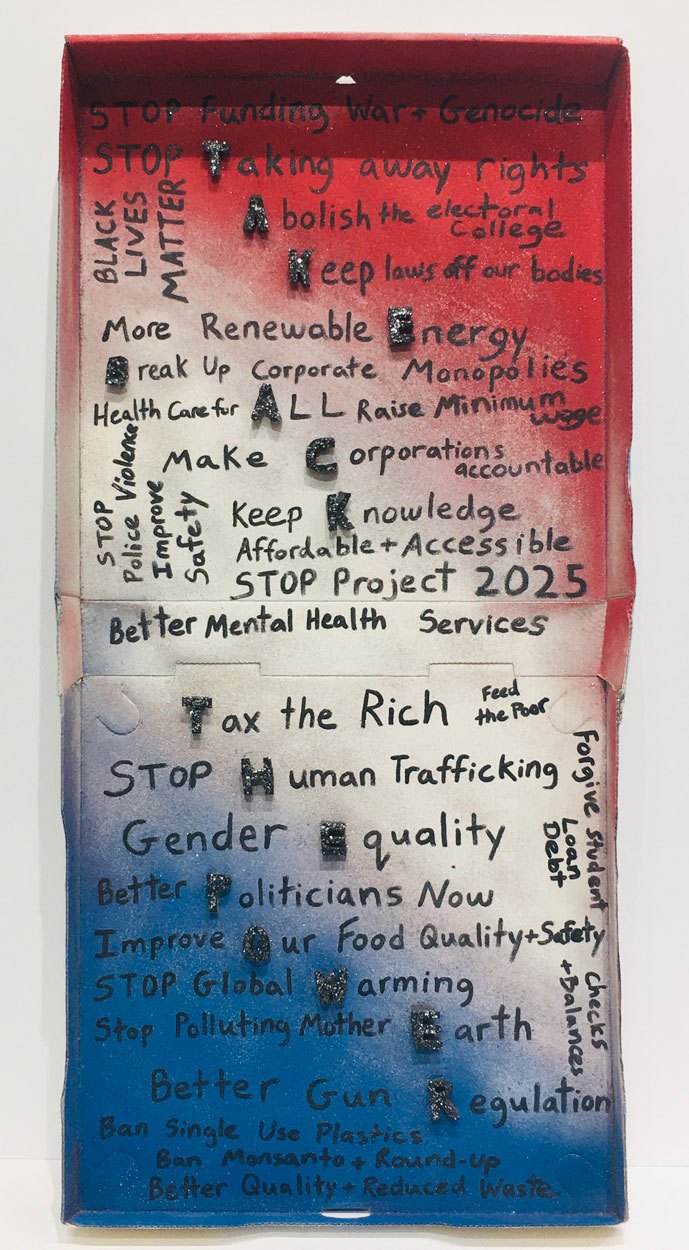 STOP Funding War + Genocide
STOP Taking away rights
BLACK
LIVES
MATTER
Abolish the electoral
College
Keep laws off our bodies
More Renewable Energy
Break Up Corporate Monopolies
Health Care for ALL Raise Minimum
wage
Make Corporations
accountable
STOP
Police Violence
Improve
Safety
Keep Knowledge
Affordable + Accessible
STOP Project 2025
Better Mental Health Services
Tax the Rich
Feed
the Poor
STOP Human Trafficking
Forgive student
Loan
Debt
Gender Equality
Better Politicians Now
Improve Our Food Quality + Safety
STOP Global Warming
Checks
+ Balances
Stop Polluting Mother Earth
Better Gun Regulation
Ban Single Use Plastics
Ban Monsanto + Round-up
Better Quality + Reduced Waste